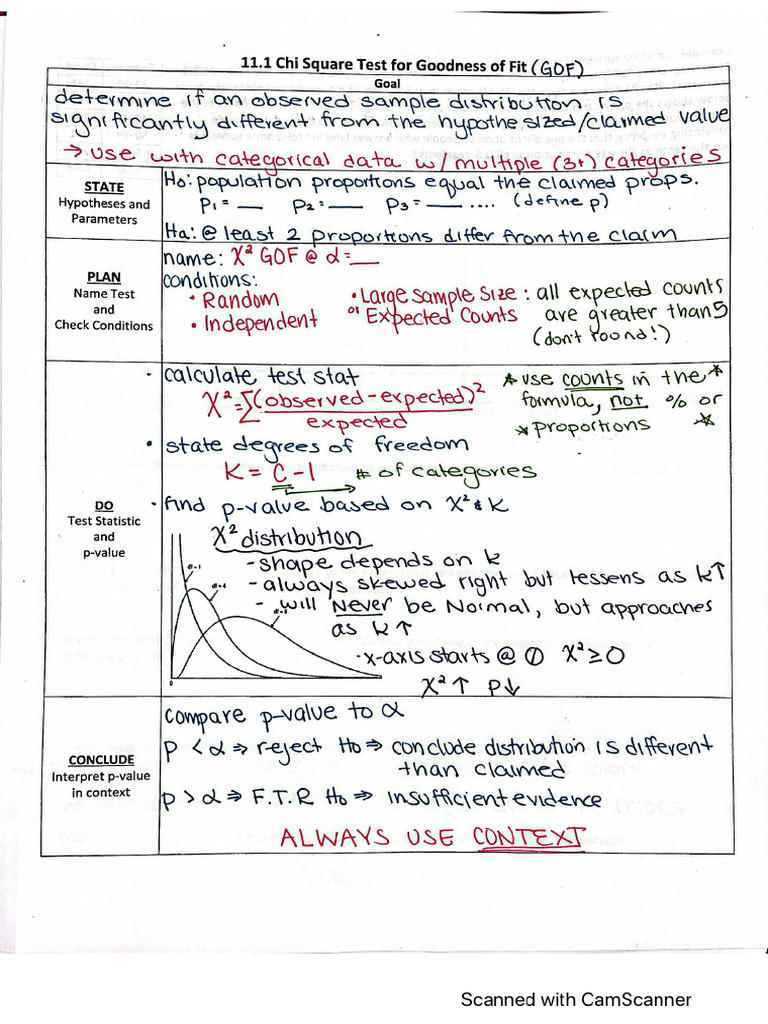 11.1 Chi Square Test for Goodness of Fit (GOF)
Goal
determine if an observed sample distribution is
significantly different from the hypothesized/claimed value
→ use with categorical data w/ multiple (3+) categories
STATE
Hypotheses and
Parameters
Ho: population proportions equal the claimed props.
P₁ = __ P₂ = __ P₃ = __ .... (define p)
Ha: @ least 2 proportions differ from the claim
PLAN
Name Test
and
Check Conditions
name: X² GOF @ α = __
conditions:
• Random
• Independent
• Large Sample Size : all expected counts
or Expected Counts are greater than 5
(don't round!)
DO
Test Statistic
and
p-value
• calculate test stat
X² = Σ (observed - expected)²
expected
* use counts in the *
formula, not % or
* proportions *
• state degrees of freedom
K = C - 1 # of categories
• find p-value based on X² & K
X² distribution
- shape depends on k
- always skewed right but lessens as k↑
- will Never be Normal, but approaches
as k↑
- x-axis starts @ 0 X² ≥ 0
X² ↑ P↓
0
CONCLUDE
Interpret p-value
in context
compare p-value to α
P < α ⇒ reject Ho ⇒ conclude distribution is different
than claimed
P > α ⇒ F.T.R Ho ⇒ insufficient evidence
ALWAYS USE CONTEXT
Scanned with CamScanner